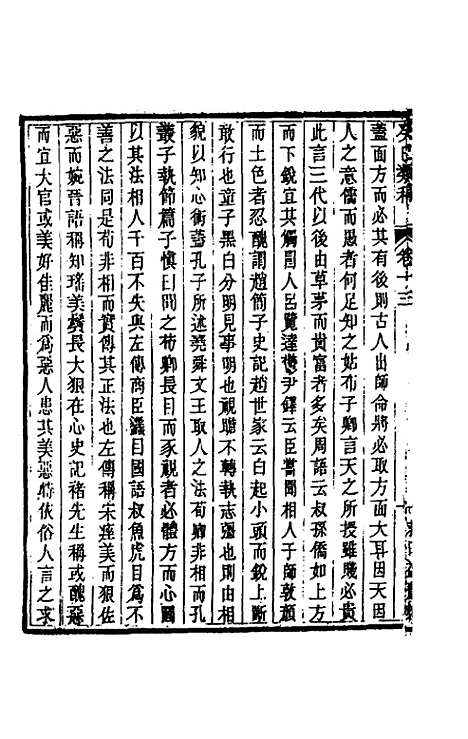 卷十三
蓋面方而必其有後則古人出師命將必取方面大耳因天因
人之意儒而愚者何足知之姑布子卿言天之所授雖賤必貴
此言三代以後由草茅而貴富者多矣周語云叔孫僑如上方
而下銳宜其觸冒人呂覽達鬱尹鐸云臣嘗聞相人于師敦顏
而土色者忍醜謂趙簡子史記趙世家云白起小頭而銳上斷
敢行也童子黑白分明見事明也視瞻不轉執志彊也則由相
貌以知心術蓋孔子所述堯舜文王取人之法荀卿非相而孔
叢子執節篇子慎曰聞之荀卿長目而豕視者必體方而心圓
以其法相人千百不失與左傳商臣蠭目國語叔魚虎目爲不
善之法同是荀非相而實傳其正法也左傳稱宋痤美而狠佐
惡而婉晉語稱知瑤美鬢長大狠在心史記褚先生稱或醜惡
而宜大官或美好佳麗而爲惡人患其美惡特依俗人言之求